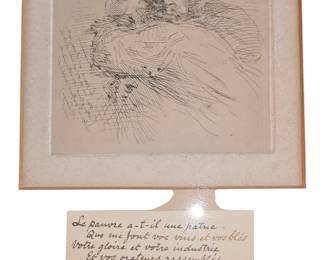 Le pauvre a-t-il une patrie.
Que me font vos vins et vos blés
Votre gloire et votre industrie
Et vos orateurs assemblés